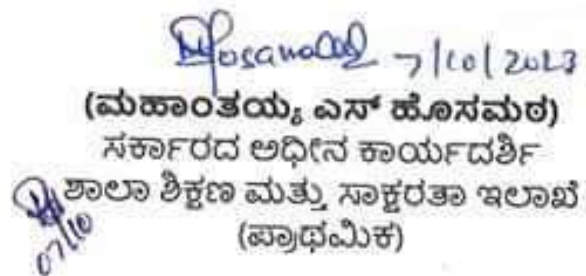 7/10/2023
(ಮಹಾಂತಯ್ಯ ಎಸ್ ಹೊಸಮಠ)
ಸರ್ಕಾರದ ಅಧೀನ ಕಾರ್ಯದರ್ಶಿ
ಶಾಲಾ ಶಿಕ್ಷಣ ಮತ್ತು ಸಾಕ್ಷರತಾ ಇಲಾಖೆ
07/10
(ಪ್ರಾಥಮಿಕ)